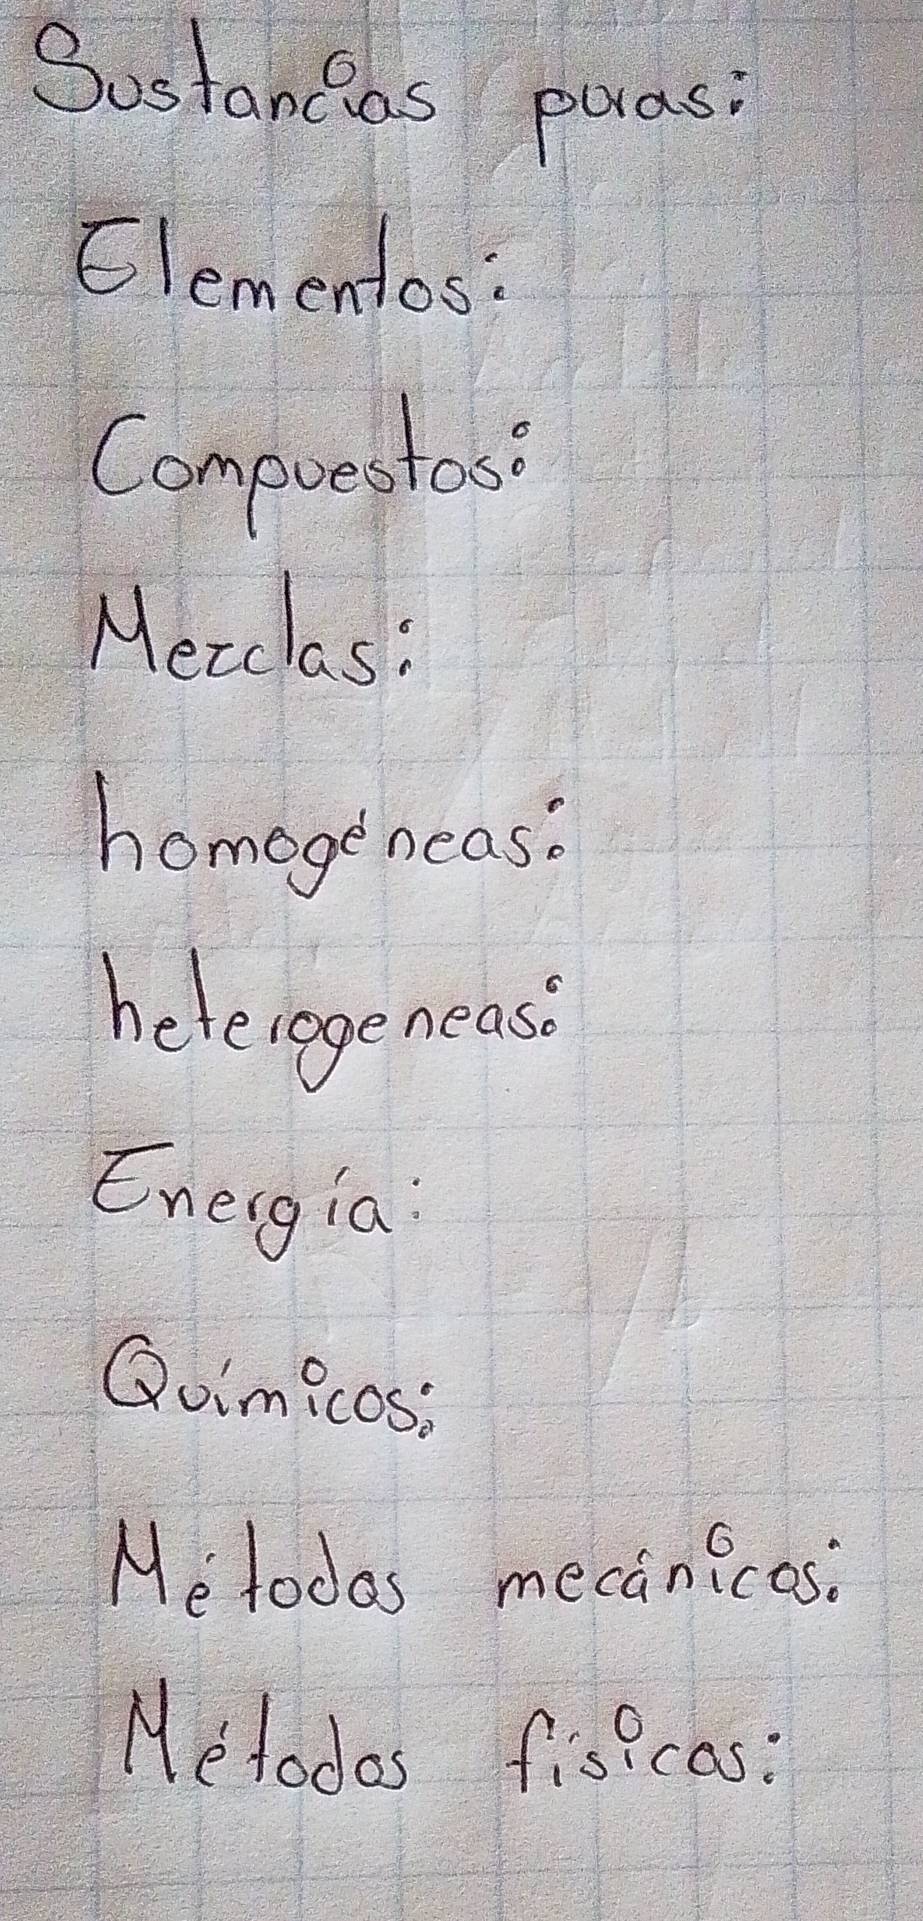 Sustancias puras:
Elementos:
Compuestos:
Mezclas:
homogéneas:
heterogeneas:
Energía:
Químicos:
Métodos mecánicos:
Métodos físicos: